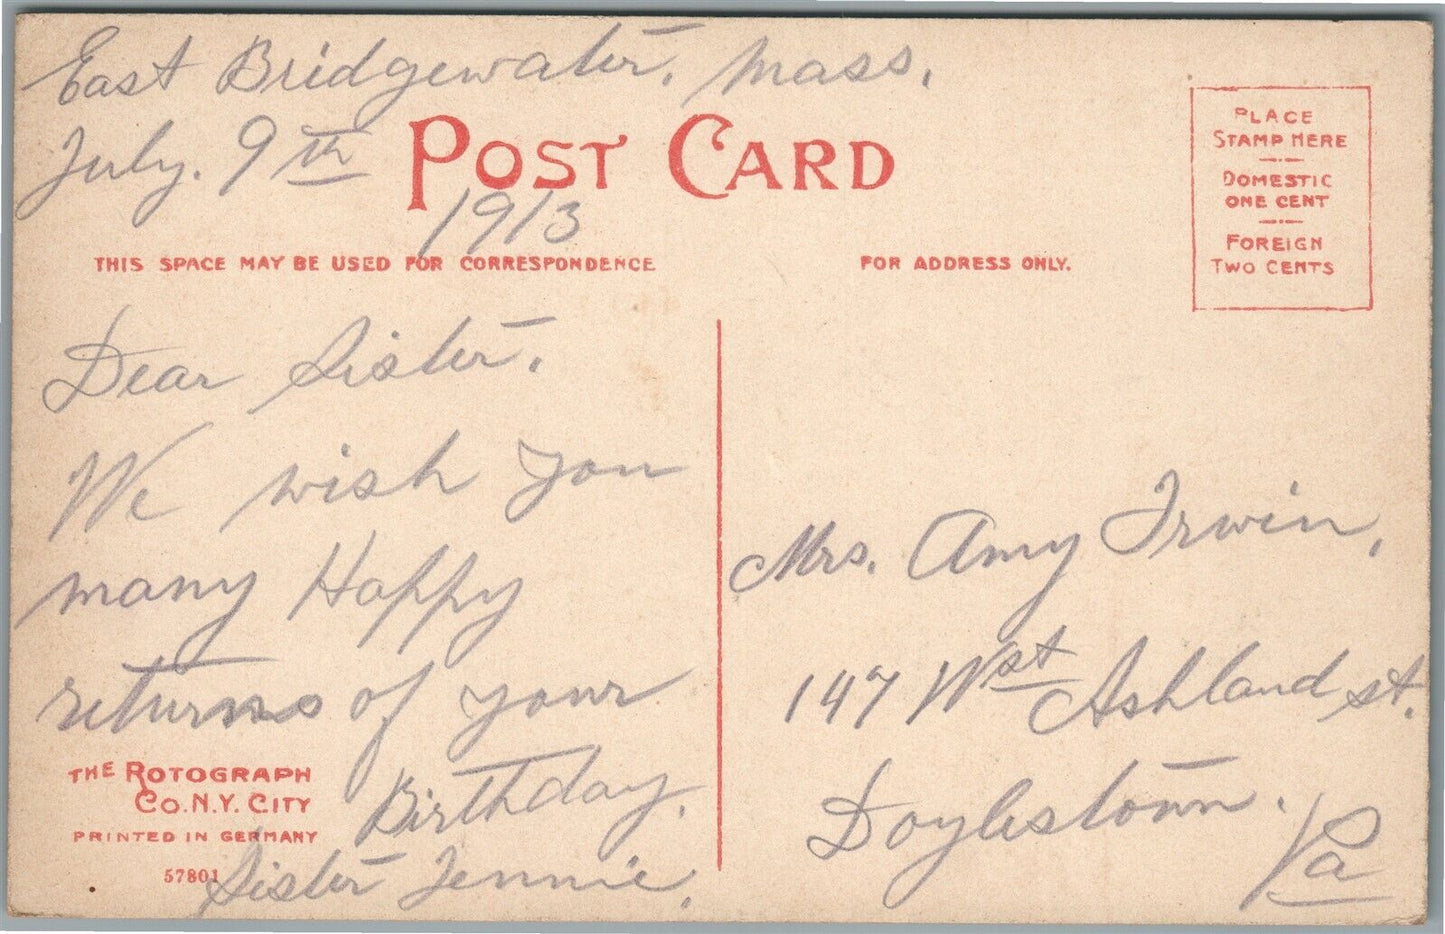 East Bridgewater, Mass.
July. 9th
1913
POST CARD
THIS SPACE MAY BE USED FOR CORRESPONDENCE
FOR ADDRESS ONLY.
PLACE
STAMP HERE
DOMESTIC
ONE CENT
FOREIGN
TWO CENTS
Dear Sister.
We wish you
many Happy
returns of your
Birthday.
Sister Jennie.
Mrs. Amy Irwin,
147 Wst Ashland st.
Doylestown.
Pa
THE ROTOGRAPH
CO. N.Y. CITY
PRINTED IN GERMANY
57801